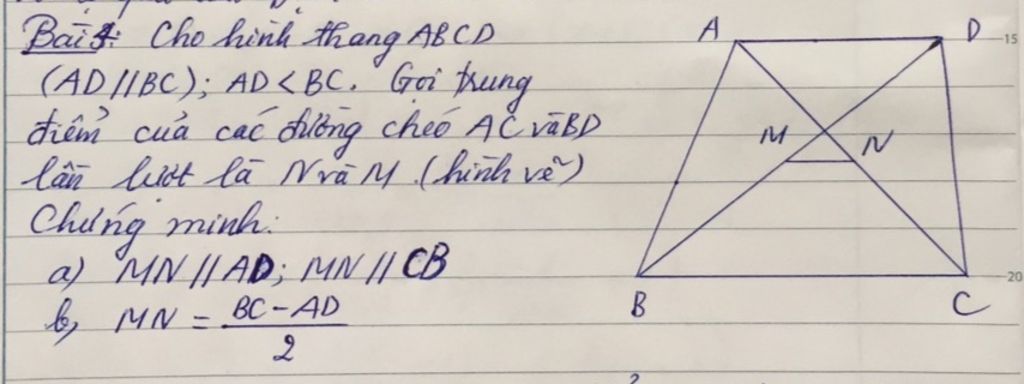 Bài 4: Cho hình thang ABCD
(AD//BC); AD < BC. Gọi trung
điểm của các đường chéo AC và BD
lần lượt là N và M. (hình vẽ)
Chứng minh:
a) MN // AD; MN // CB
b, MN = BC - AD
2
A
D
15
M
N
20
B
C